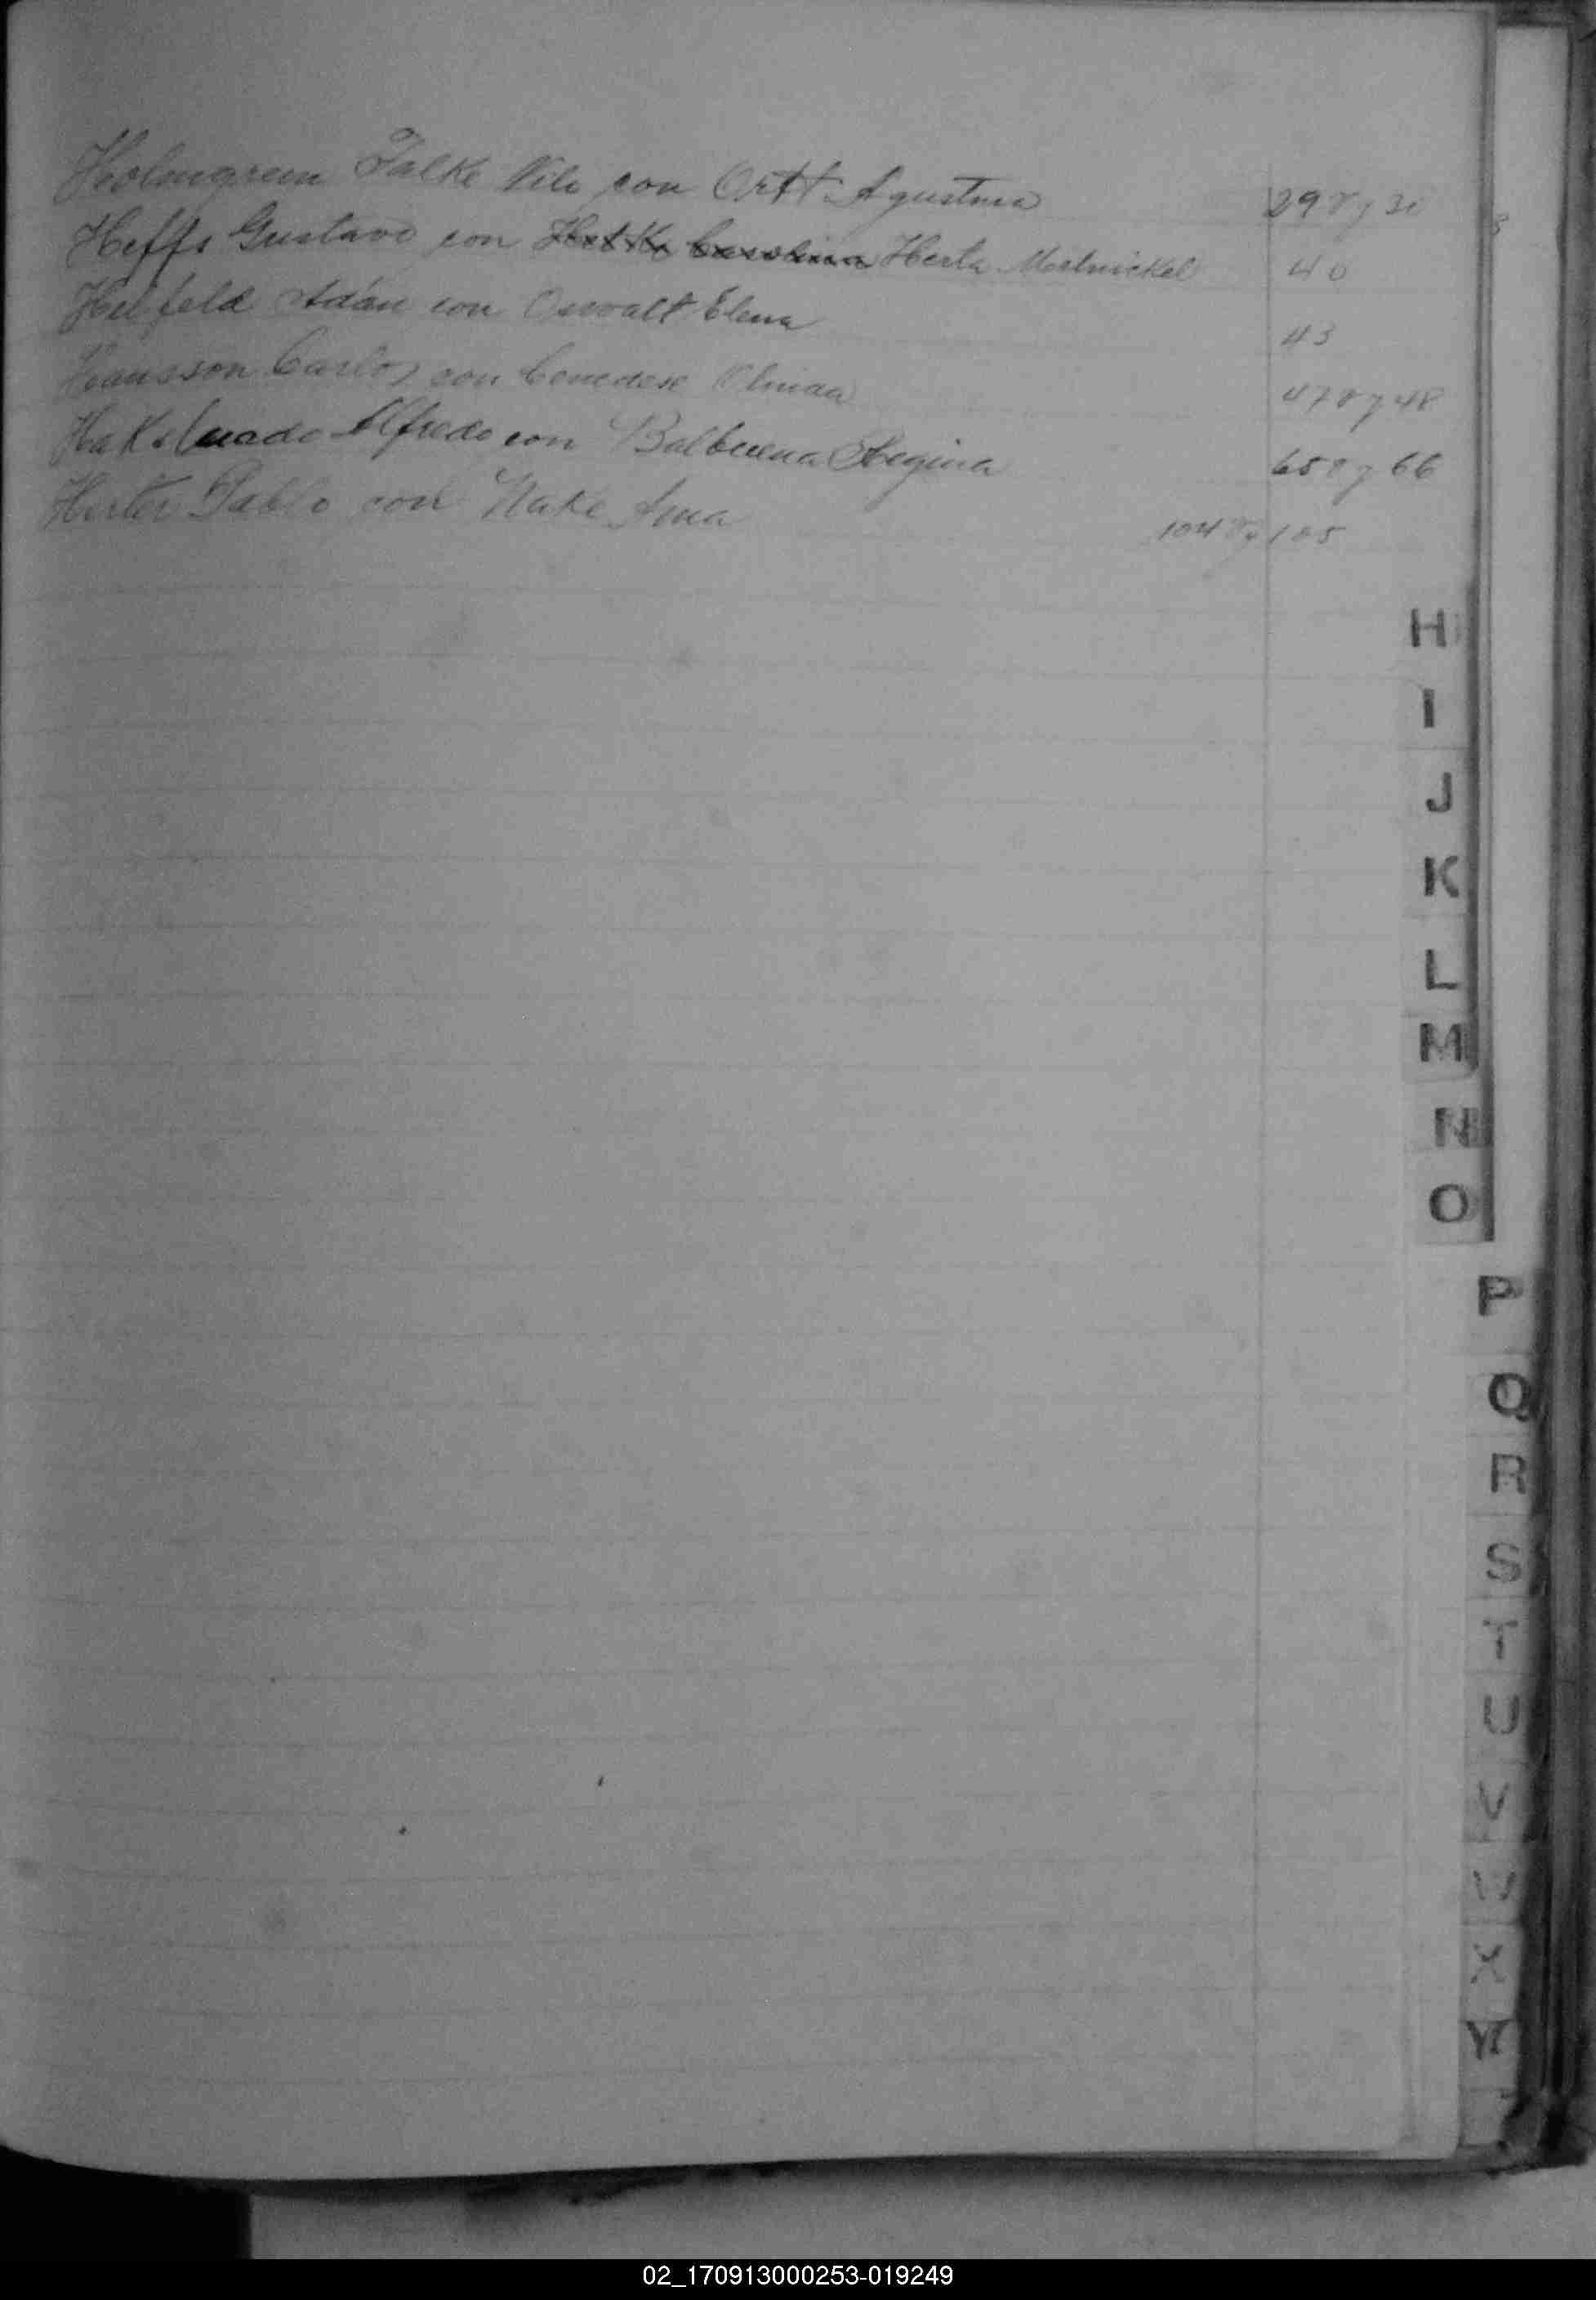 Holmgrem Falke Nilo con Ortt Agustina 29 v y 30
Heffs Gustavo con Herta Mertnickel 40
Helfeld Adán con Oswalt Elena 43
Hansson Carlos con Olinda 47 v y 48
Alfredo con Balbuena Regina 65 v y 66
Herter Pablo con Nake Ana 104 v y 105
H
I
J
K
L
M
N
O
P
Q
R
S
T
U
V
W
X
Y
02_170913000253-019249